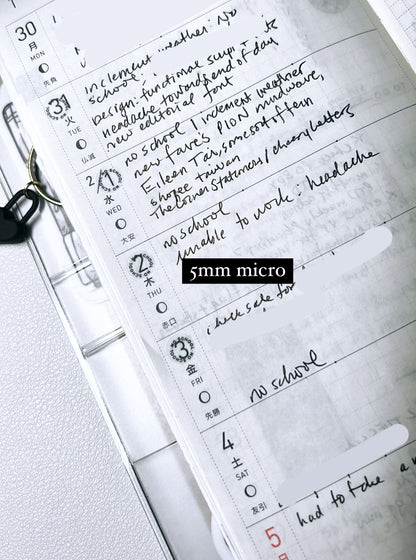 30
月
MON
先負
inclement weather: no
school.
31
火
TUE
仏滅
Design: functional
headache towards end of day,
new editorial font
2
1
水
WED
大安
no school / inclement weather
new fave's PION mundwave,
Eileen Tai, somesortoffern
shopee taiwan
The Corner Stationers / cheery letters
2
木
THU
赤口
no school
unable to work: headache
5mm micro
check sale for
3
金
FRI
先勝
no school.
4
土
SAT
友引
5
日
had to take a